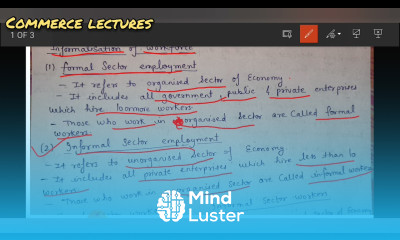 COMMERCE LECTURES
1 OF 3
Informalisation of workforce
(1) Formal Sector employment
- It refers to organised Sector of Economy
- It includes all government, public & private enterprises
which hire 10 or more workers
- Those who work in organised sector are called formal
workers.
(2) Informal Sector employment
- It refers to unorganised Sector of Economy
- It includes all private enterprises which hire less than 10
workers
- Those who work in unorganised sector are called informal workers
Mind
Luster